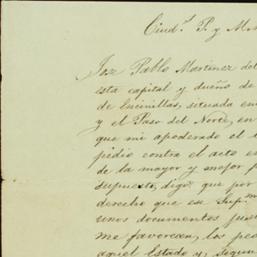 Ciud.s P. y M.
José Pablo Martinez del
esta capital y dueño de
de Encinillas, situada en
y el Paso del Norte, en
que mi apoderado el
pedio contra el acto e
de la mayor y mejor f
supuesto, digo: que por
derecho que en Sup.mo
unos documentos pu
me favorecen, los pe
aquel Estado y, segun